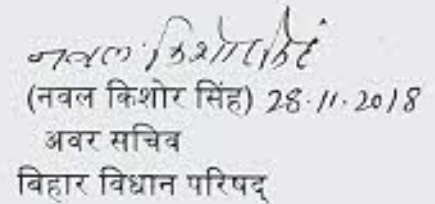 नवल किशोर सिंह
(नवल किशोर सिंह) 28.11.2018
अवर सचिव
बिहार विधान परिषद्